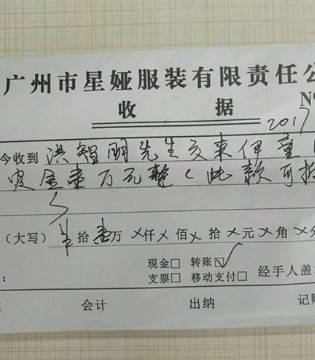 广州市星娅服装有限责任公
收 据
N
2017
今收到 洪智明先生交来伊童
金壹万元整（此款可
（大写） 拾壹万 ㄨ仟 ㄨ佰 ㄨ拾 ㄨ元 ㄨ角 ㄨ分
现金□ 转账☑
支票□ 移动支付□ 经手人盖
会计 出纳 记账